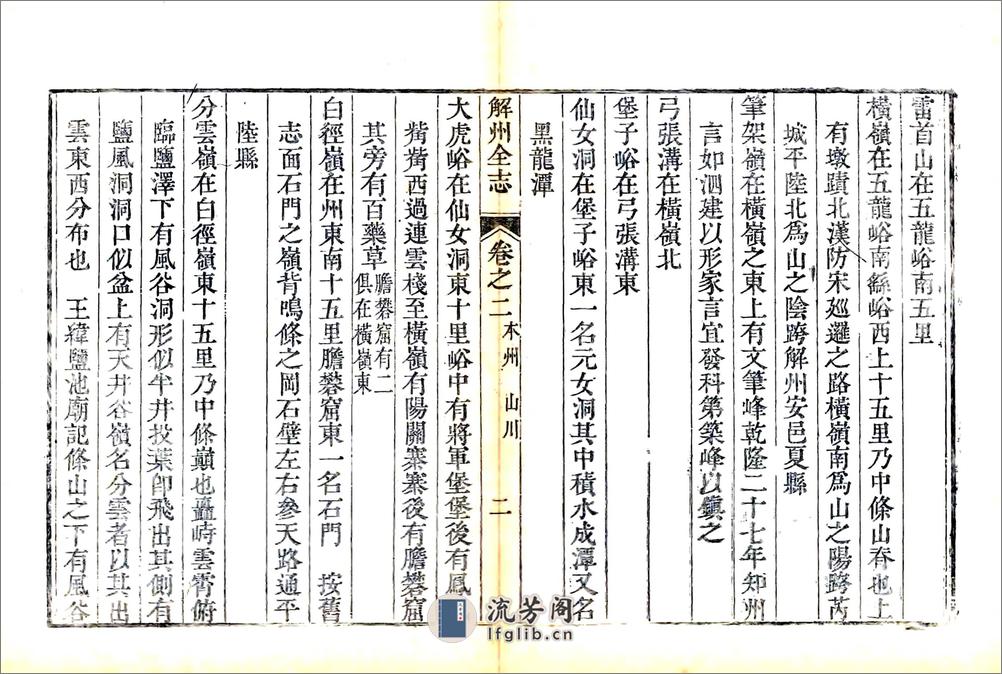 雷首山在五龍峪南五里
橫嶺在五龍峪南繇峪西上十五里乃中條山脊也上
有墩蹟北漢防宋廵邏之路橫嶺南爲山之陽跨芮
城平陸北爲山之陰跨解州安邑夏縣
筆架嶺在橫嶺之東上有文筆峰乾隆二十七年知州
言如泗建以形家言宜發科第築峰以鎭之
弓張溝在橫嶺北
堡子峪在弓張溝東
仙女洞在堡子峪東一名元女洞其中積水成潭又名
黑龍潭
解州全志 卷之二 本州 山川 二
大虎峪在仙女洞東十里峪中有將軍堡堡後有鳳
觜觜西過連雲棧至橫嶺有陽關寨寨後有膽礬窟
其旁有百藥草 膽礬窟有二
俱在橫嶺東
白徑嶺在州東南十五里膽礬窟東一名石門 按舊
志面石門之嶺背鳴條之岡石壁左右參天路通平
陸縣
分雲嶺在白徑嶺東十五里乃中條巔也矗峙雲霄俯
臨鹽澤下有風谷洞形似半井投葉卽飛出其側有
鹽風洞洞口似盆上有天井谷嶺名分雲者以其出
雲東西分布也 王緯鹽池廟記條山之下有風谷
流芳阁
lfglib.cn